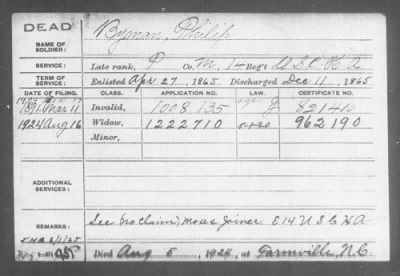 DEAD
Byman, Philip
NAME OF SOLDIER:
SERVICE: Late rank, P Co. M, 14 Reg't U S C H A
TERM OF SERVICE: Enlisted Apr 27, 1865 Discharged Dec 11, 1865
DATE OF FILING. CLASS. APPLICATION NO. LAW. CERTIFICATE NO.
1891 Mar 11 Invalid, 1008 135 821410
1924 Aug 16 Widow, 1222710 5-1-20 962190
Minor,
ADDITIONAL SERVICES:
REMARKS: See (No Claim) Moses Joiner E 14 U S C H A
Died Aug 5, 1924, at Farmville, N.C.